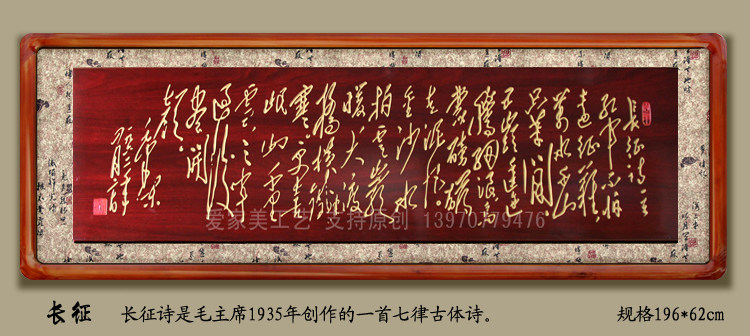 长征诗一首
红军不怕
远征难
万水千山
只等闲
五岭逶迤
腾细浪乌
蒙磅礴
走泥丸
金沙水
拍云崖
暖大渡
桥横铁索
寒更喜
岷山千里
雪三军
过后
尽开
颜
毛泽东
爱家美工艺 支持原创
长征 长征诗是毛主席1935年创作的一首七律古体诗。 规格196*62cm